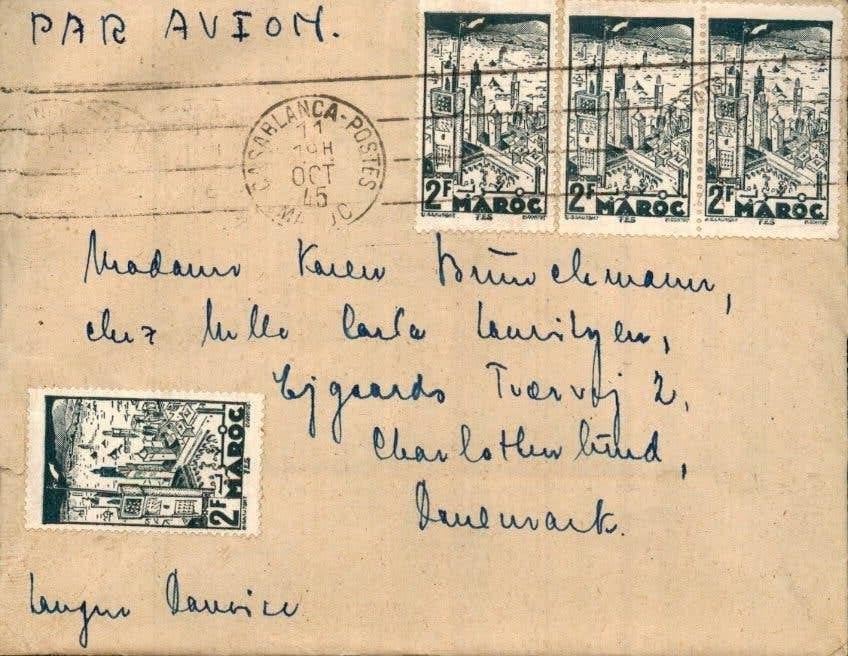 PAR AVION.
CASABLANCA-POSTES
11
19H
OCT
45
MAROC
2F MAROC
2F MAROC
2F MAROC
Madame Karen Brünchmann,
chez Mlle Carla Lauritzen,
Ejgaards Tværvej 2,
Charlottenlund,
Danemark.
2F MAROC
Langue Danoise